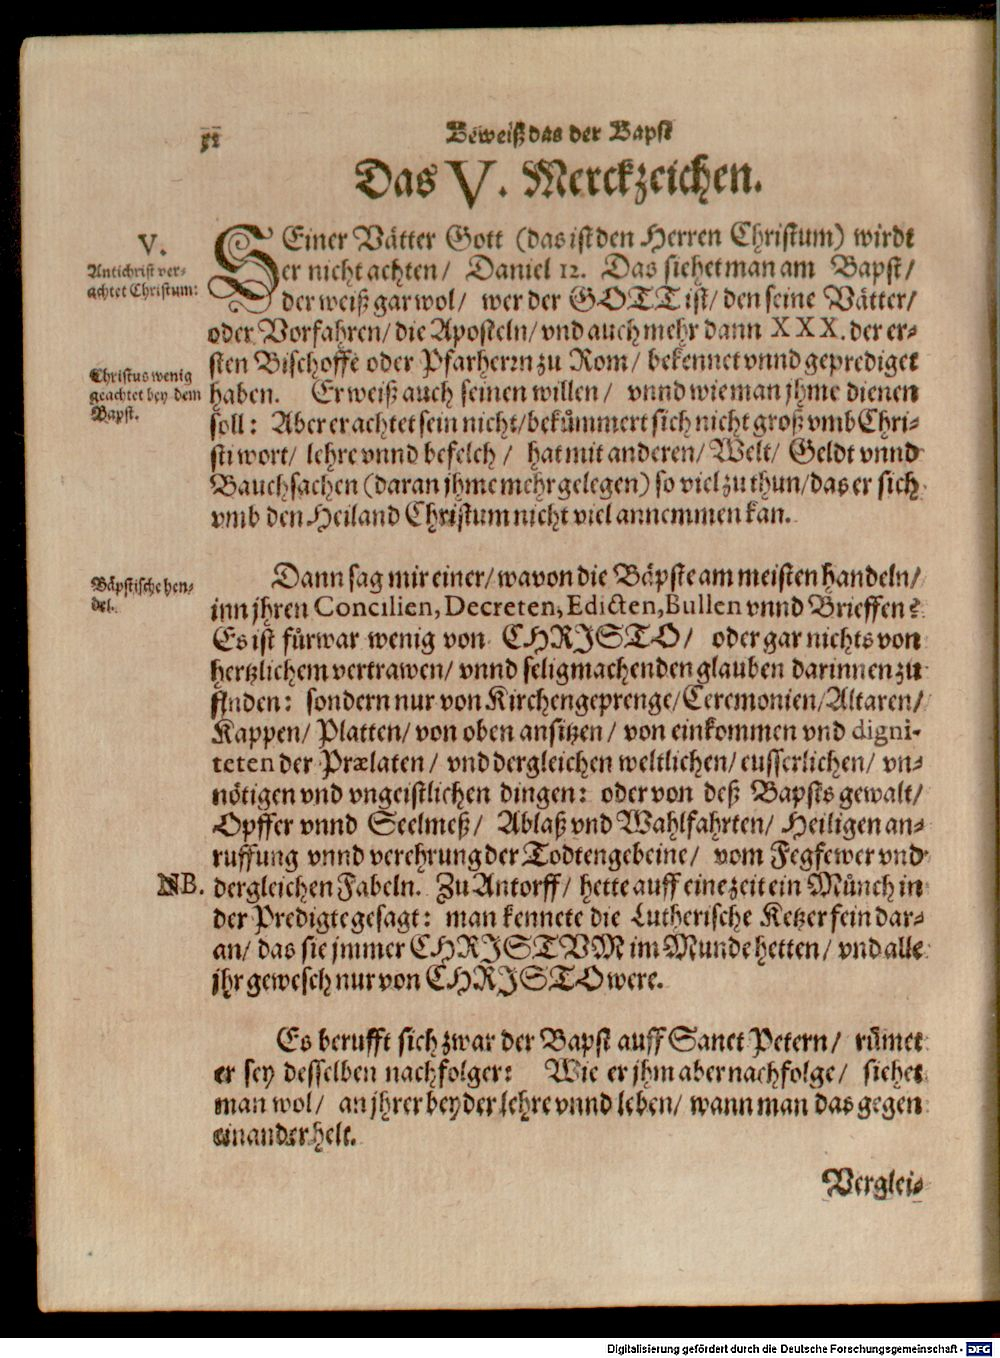 xi
Beweiß das der Bapst
Das V. Merckzeichen.
V.
Antichrist ver-
achtet Christum:
SEiner Vätter Gott (das ist den Herren Christum) wirdt
er nicht achten/ Daniel 12. Das siehet man am Bapst/
der weiß gar wol/ wer der GOTT ist/ den seine Vätter/
oder Vorfahren/ die Aposteln/ vnd auch mehr dann XXX. der er-
sten Bischoffe oder Pfarherrn zu Rom/ bekennet vnnd geprediget
Christus wenig
geachtet bey dem
Bapst.
haben. Er weiß auch seinen willen/ vnnd wie man jhme dienen
soll: Aber er achtet sein nicht/ bekümmert sich nicht groß vmb Chri-
sti wort/ lehre vnnd befelch/ hat mit anderen/ Welt/ Geldt vnnd
Bauchsachen (daran jhme mehr gelegen) so viel zu thun/ das er sich
vmb den Heiland Christum nicht viel annemmen kan.
Bäpstische hen-
del.
Dann sag mir einer/ wavon die Bäpste am meisten handeln/
inn jhren Concilien, Decreten, Edicten, Bullen vnnd Brieffen?
Es ist fürwar wenig von CHRISTO/ oder gar nichts von
hertzlichem vertrawen/ vnnd seligmachenden glauben darinnen zu
finden: sondern nur von Kirchengeprenge/ Ceremonien/ Altaren/
Kappen/ Platten/ von oben ansitzen/ von einkommen vnd digni-
teten der Prælaten/ vnd dergleichen weltlichen/ eusserlichen/ vn-
nötigen vnd vngeistlichen dingen: oder von deß Bapsts gewalt/
Opffer vnnd Seelmeß/ Ablaß vnd Wahlfahrten/ Heiligen an-
ruffung vnnd verehrung der Todtengebeine/ vom Fegfewer vnd
NB.
dergleichen Fabeln. Zu Antorff/ hette auff eine zeit ein Münch in
der Predigte gesagt: man kennete die Lutherische Ketzer fein dar-
an/ das sie jmmer CHRISTVM im Munde hetten/ vnd alle
jhr gewesch nur von CHRISTO were.
Es berufft sich zwar der Bapst auff Sanct Petern/ rümet
er sey desselben nachfolger: Wie er jhm aber nachfolge/ siehet
man wol/ an jhrer beyder lehre vnnd leben/ wann man das gegen
einander helt.
Verglei-
Digitalisierung gefördert durch die Deutsche Forschungsgemeinschaft - DFG